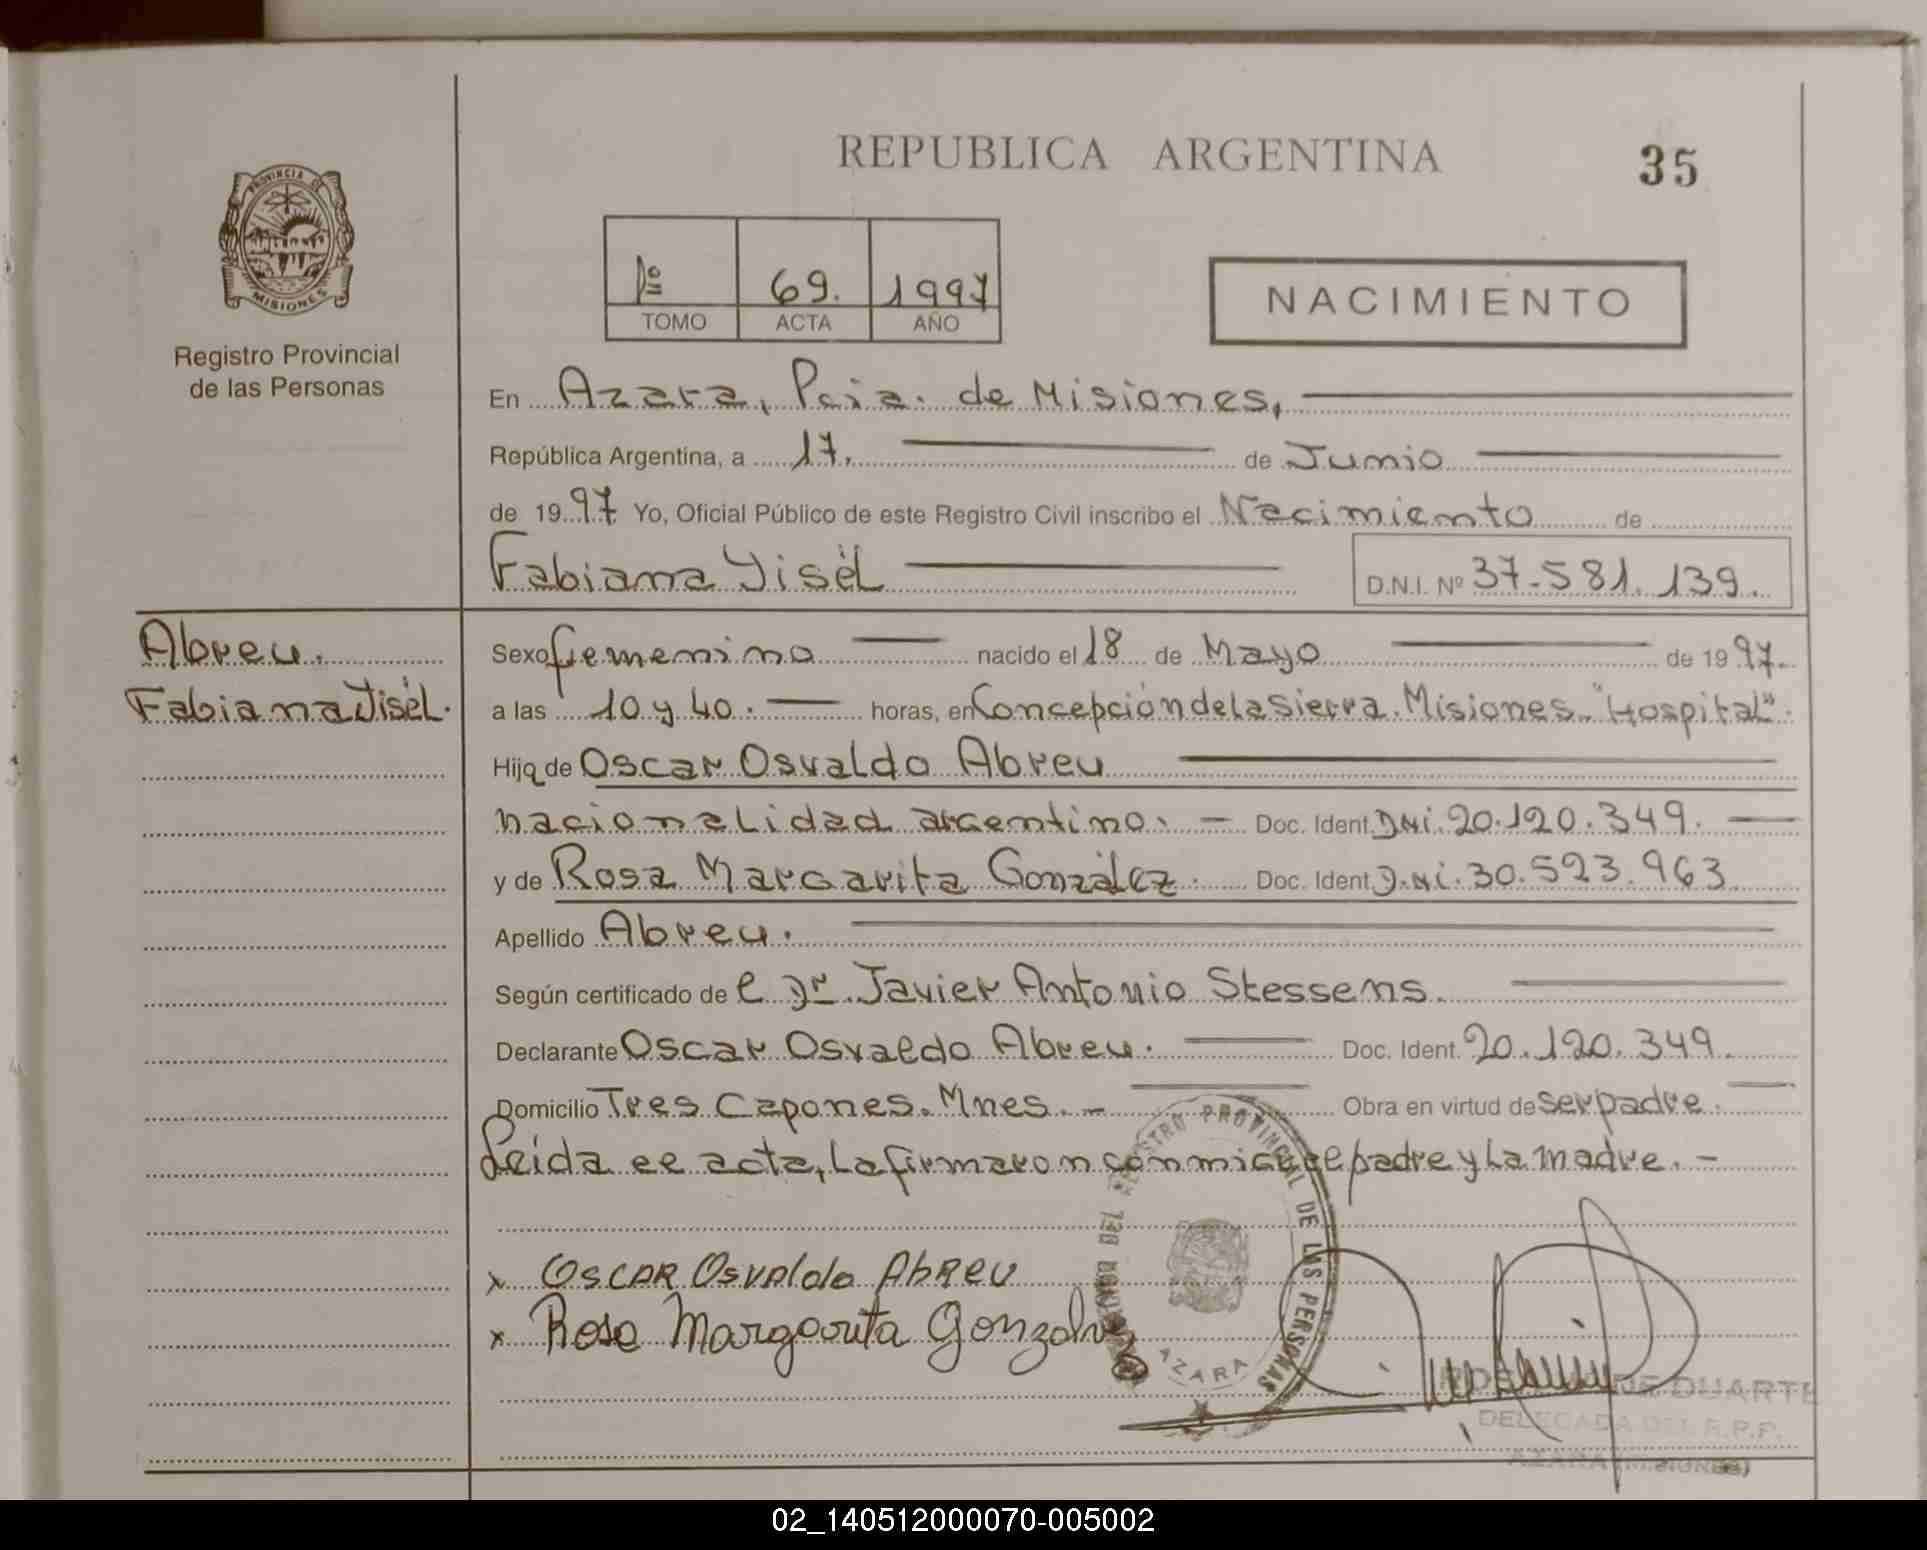 REPUBLICA ARGENTINA
35
PROVINCIA DE
MISIONES
Registro Provincial
de las Personas
1º 69. 1997
TOMO ACTA AÑO
NACIMIENTO
En Azara, Pcia. de Misiones,
República Argentina, a 17. de Junio
de 1997 Yo, Oficial Público de este Registro Civil inscribo el Nacimiento de
Fabiana Yisél D.N.I. Nº 37.581.139.
Abreu.
Fabiana Jisél.
Sexo femenino nacido el 18 de Mayo de 1997.
a las 10 y 40. horas, en Concepción de la Sierra. Misiones. "Hospital".
Hija de Oscar Osvaldo Abreu
nacionalidad argentino. Doc. Ident. DNi. 20.120.349.
y de Rosa Margarita González. Doc. Ident. D.Ni. 30.523.963
Apellido Abreu.
Según certificado de el Dr. Javier Antonio Stessens.
Declarante Oscar Osvaldo Abreu. Doc. Ident. 20.120.349.
Domicilio Tres Capones. Mnes. Obra en virtud de ser padre.
Leida el acta, la firmaron conmigo el padre y la madre.
x Oscar Osvaldo Abreu
x Rosa Margarita Gonzalez
REGISTRO PROVINCIAL DE LAS PERSONAS
AZARA
DE DUARTE
DELEGADA DEL R.P.P.
AZARA (MISIONES)
02_140512000070-005002